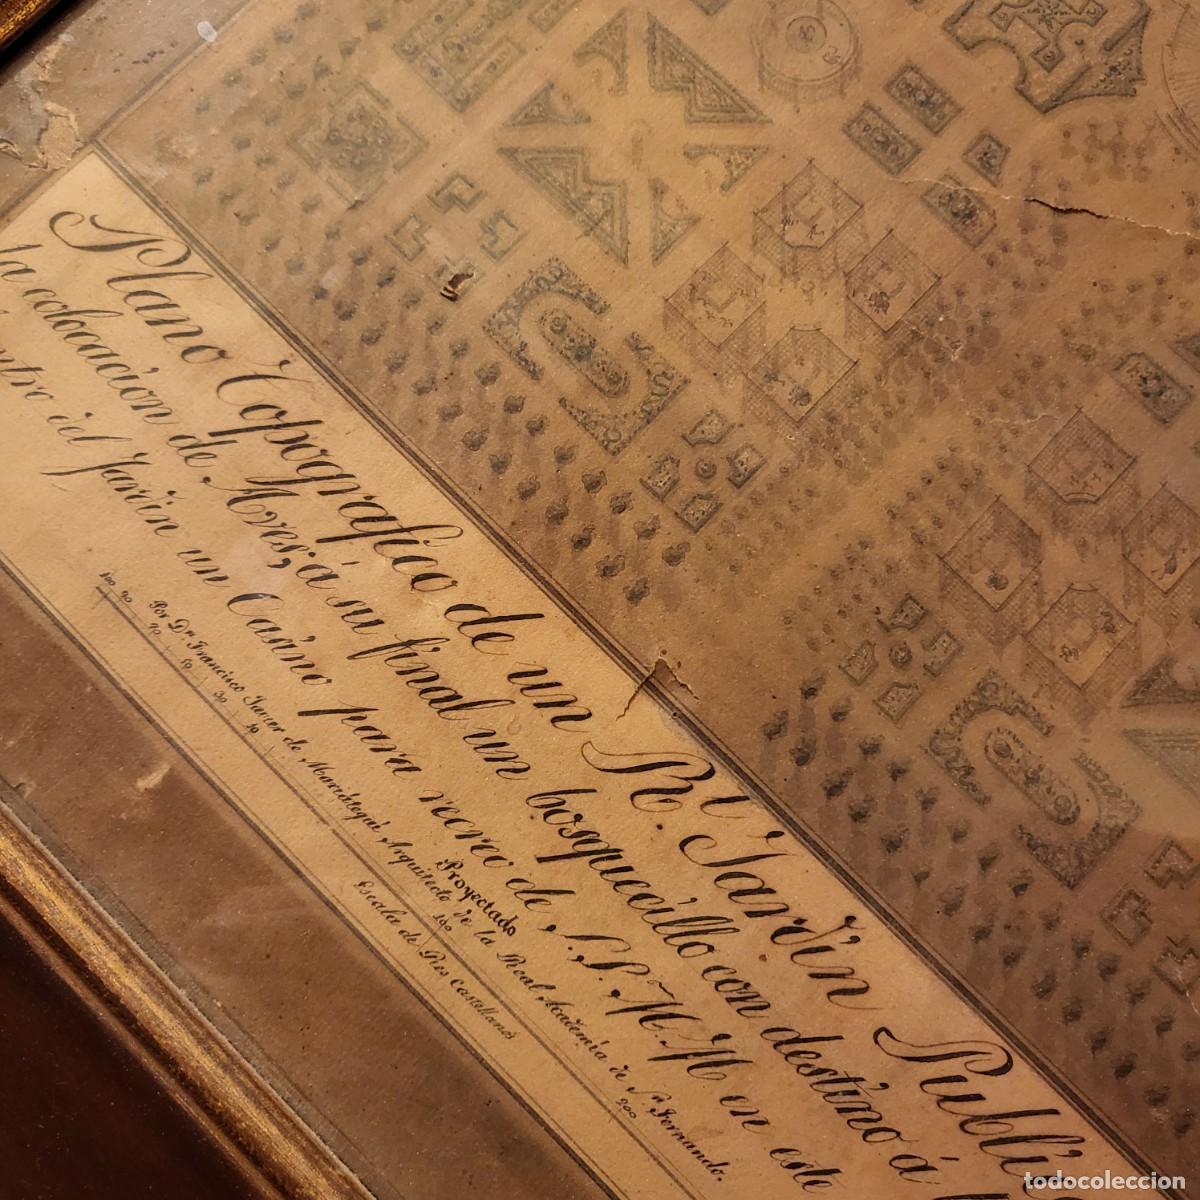 Plano Topografico de un Rl. Jardin Publi
la colocacion de Aves, á su final un bosquecillo con destino á
ntro del Jardin un Casino para recreo de S.S. M.M. en este
Proyectado
Por Dn. Francisco Javier de Mariátegui Arquitecto de la Real Academia de Sn. Fernando.
100 200
Escala de Pies Castellanos
todocoleccion